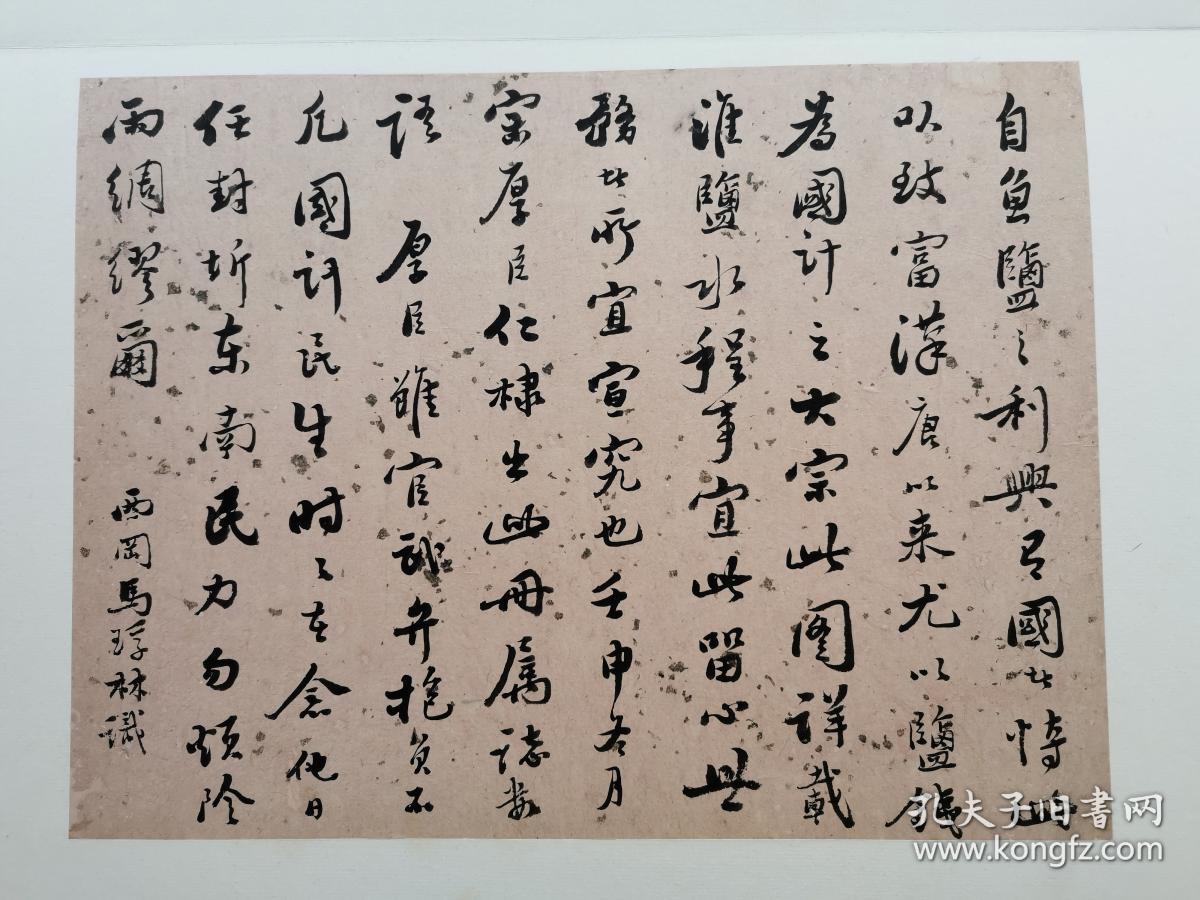 自魚鹽之利興有國者恃此
以致富漢唐以来尤以鹽鐵
為國計之大宗此圖詳載
淮鹽水程事宜此留心世
務者所宜宣究也壬申冬月
宗厚臣仁棣出此冊属誌數
語 厚臣雖官武弁抱負不
凡國計民生時々在念他日
任封圻東南民力勿煩陰
雨綢繆爾 雨岡馬琈林識
孔夫子旧书网
www.kongfz.com